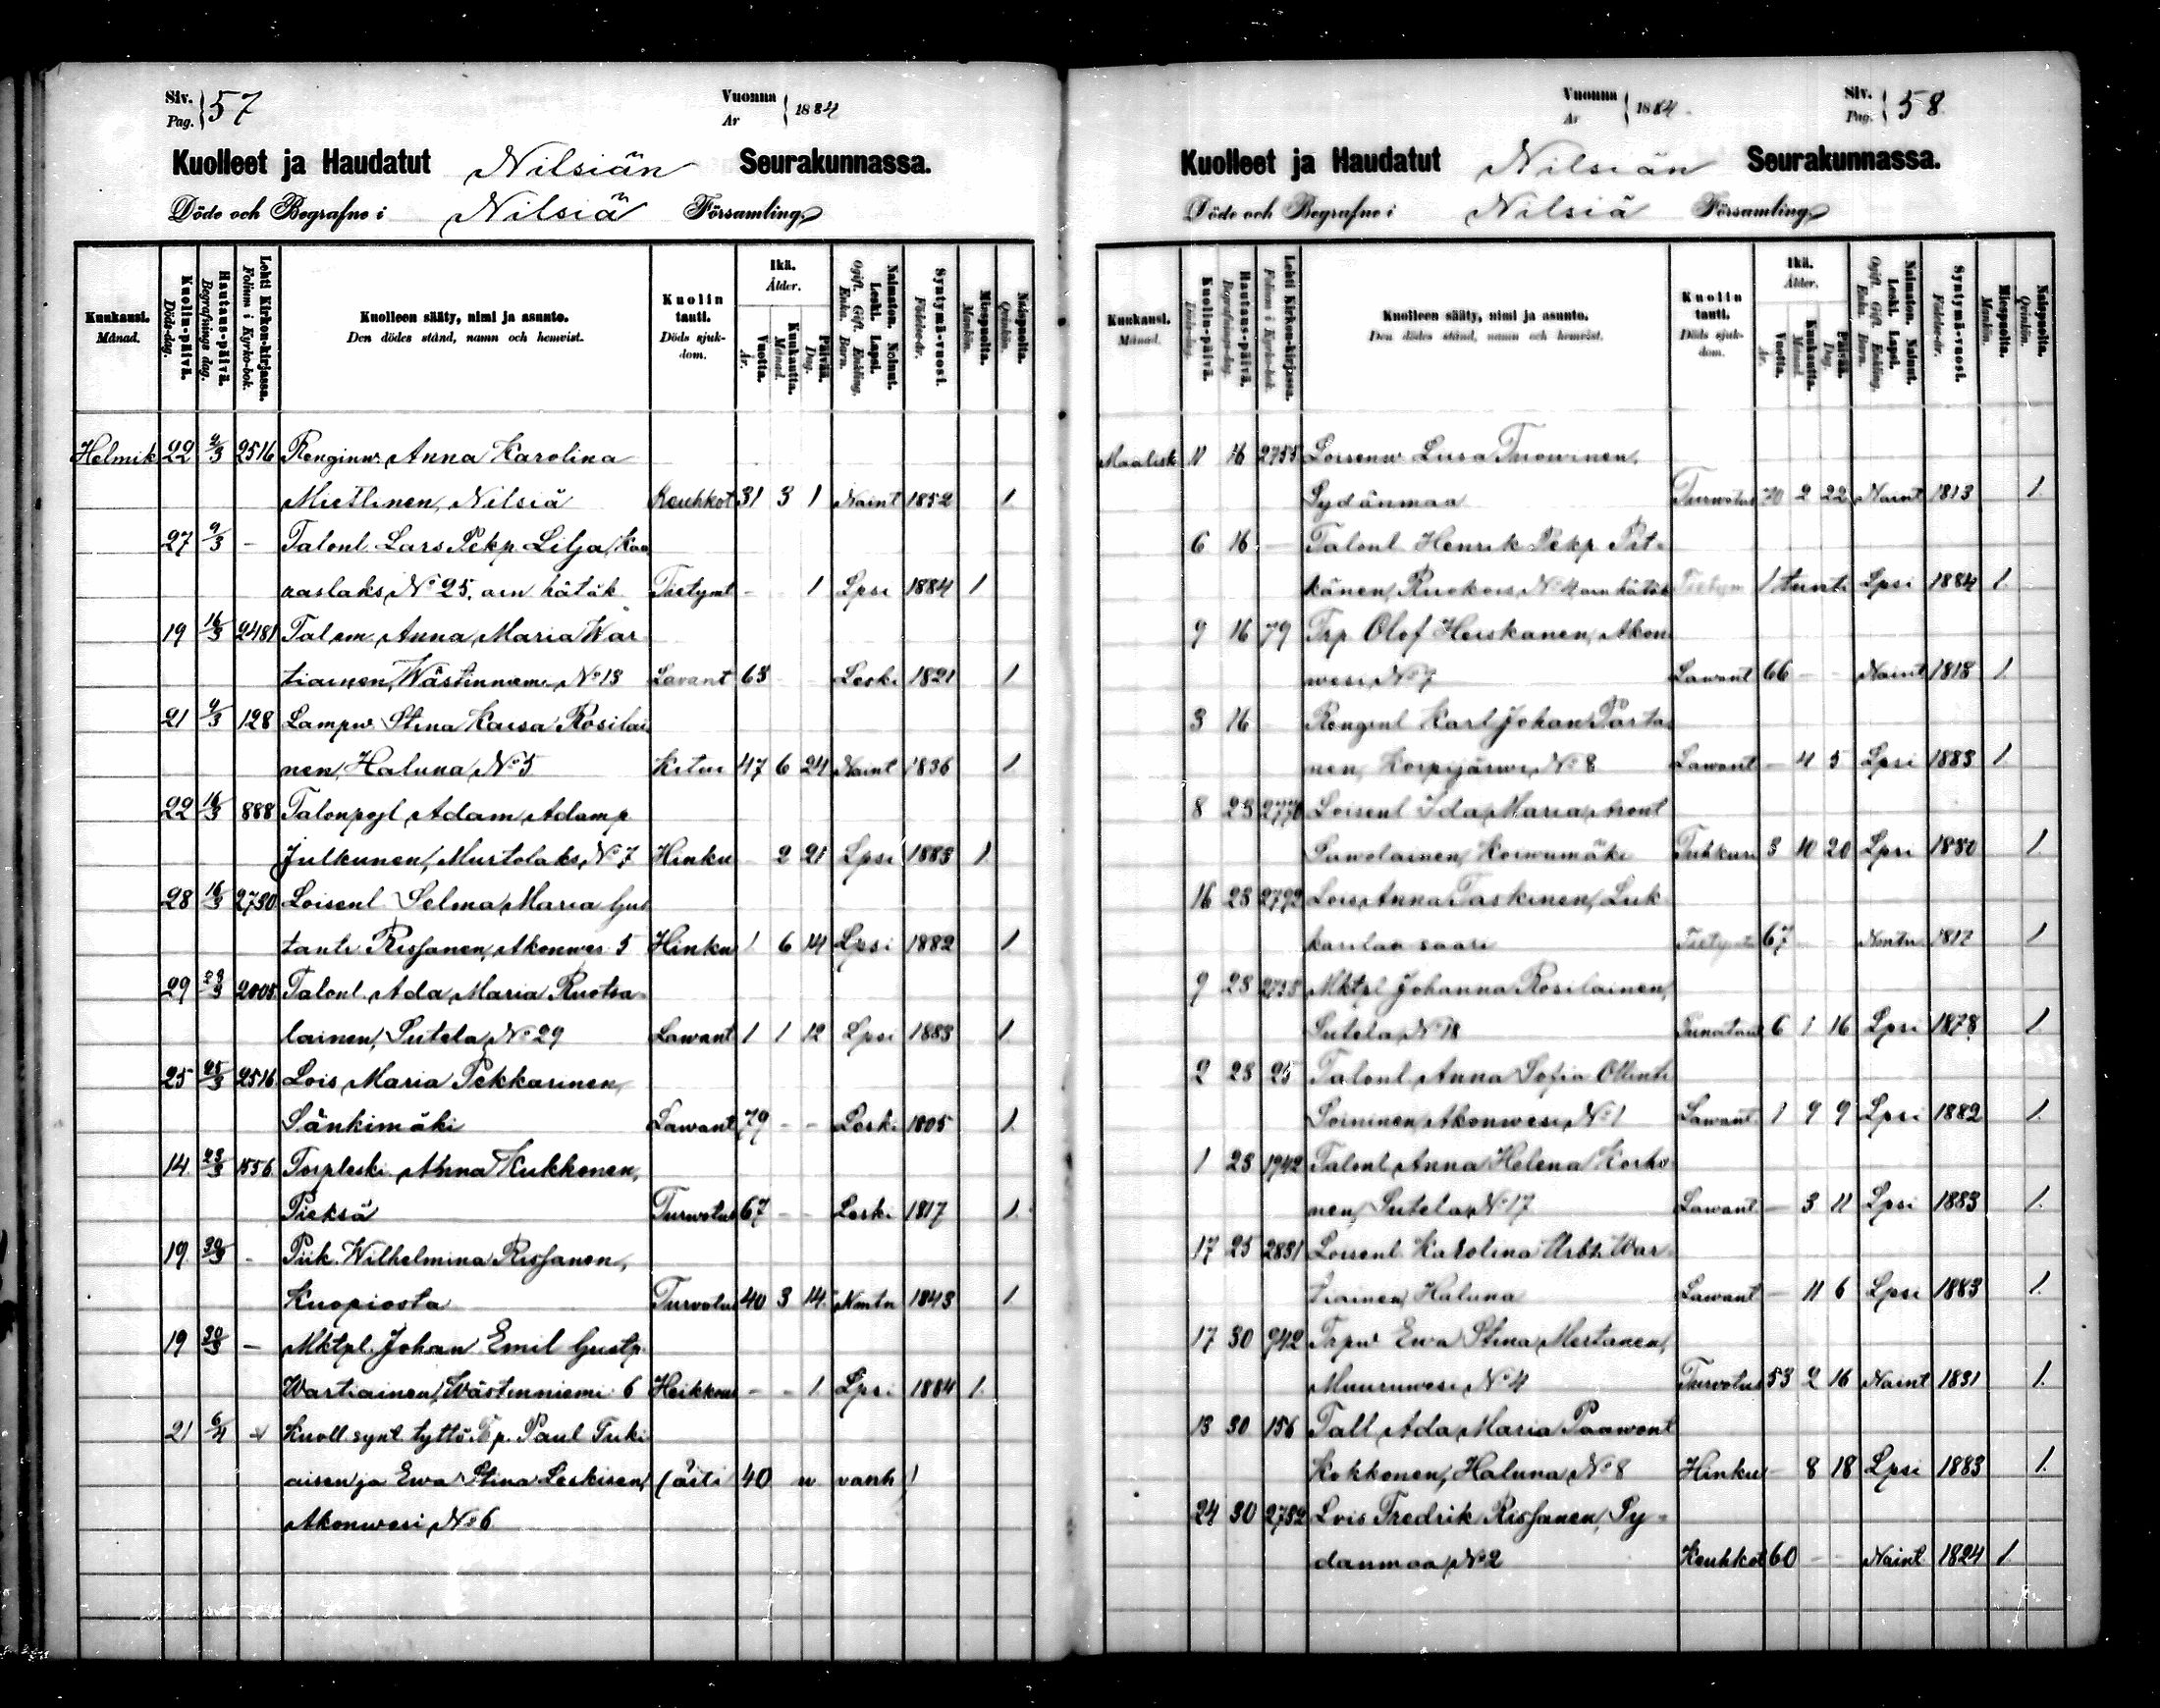 Siv. Pag. 57 Vuonna År 1884
Kuolleet ja Haudatut Nilsiän Seurakunnassa.
Döde och Begrafne i Nilsiä Församling
Kuukausi. Månad. Kuolin-päivä. Döds-dag. Hautaus-päivä. Begrafnings dag. Lehti Kirkon-kirjassa. Folium i Kyrko-bok. Kuolleen sääty, nimi ja asunto. Den dödes stånd, namn och hemvist. Kuolin tauti. Döds sjuk-dom. Ikä. Ålder. Vuotta. År. Kuukautta. Månad. Päivää. Dag. Naimaton. Nainut. Leski. Lapsi. Ogift. Gift. Enkling. Enka. Barn. Syntymä-vuosi. Födelse-år. Miespuolta. Mankön. Naispuolta. Qvinkön.
Helmik 22 9/3 2516 Renginw. Anna Karolina
Miettinen, Nilsiä Keuhkot 31 3 1 Naint 1852 1
27 9/3 - Talonl Lars Pekp Lilja, Kaa
raslaks, No 25. am hätäk Tietymt - 1 Lpsi 1884 1
19 16/3 2481 Talem Anna Maria War
tiainen, Wästinniem No 13 Lavant 63 Leski 1821 1
21 9/3 128 Lampw Stina Kaisa Rosilai
nen, Haluna No 5 Kitui 47 6 24 Naint 1836 1
22 16/3 888 Talonpojl Adam Adamp
Julkunen, Murtolaks, No 7 Hinku - 2 21 Lpsi 1883 1
28 16/3 2730 Loisenl Selma Maria Gus
tantr Rissanen, Akonwes 5 Hinku 1 6 14 Lpsi 1882 1
29 23/3 2005 Talonl Ada Maria Ruotsa
lainen, Sutela No 29 Lawant 1 1 12 Lpsi 1883 1
25 25/3 2516 Lois Maria Pekkarinen,
Sänkimäki Lawant 79 - - Leski 1805 1
14 23/3 1556 Torpleski Anna Kukkonen,
Pieksä Turwotus 67 - - Leski 1817 1
19 30/3 - Piik. Wilhelmina Rissanen,
Kuopiosta Turvotus 40 3 14 Nmtn 1843 1
19 30/3 - Mktpl. Johan Emil Gustp
Wartiainen, Wästinniemi 6 Heikkous - - 1 Lpsi 1884 1
21 6/4 Kuoll synt tyttö Tp. Paul Tuki
aisen ja Ewa Stina Leskisen, (äiti 40 v. vanh)
Akonwesi No 6
Vuonna År 1884 Siv. Pag. 58
Kuolleet ja Haudatut Nilsiän Seurakunnassa.
Döde och Begrafne i Nilsiä Församling
Kuukausi. Månad. Kuolin-päivä. Döds-dag. Hautaus-päivä. Begrafnings-dag. Lehti Kirkon-kirjassa. Folium i Kyrko-bok. Kuolleen sääty, nimi ja asunto. Den dödes stånd, namn och hemvist. Kuolin tauti. Döds sjuk-dom. Ikä. Ålder. Vuotta. År. Kuukautta. Månad. Päivää. Dag. Naimaton. Nainut. Leski. Lapsi. Ogift. Gift. Enkling. Enka. Barn. Syntymä-vuosi. Födelse-år. Miespuolta. Mankön. Naispuolta. Qvinkön.
Maalisk 11 16 2755 Loisenw Liisa Tuowinen,
Sydänmaa Turwotus 70 2 22 Naint 1813 1
6 16 - Talonl Henrik Pekp Pit
känen, No 4, am hätäk Tietym 1 tunti Lpsi 1884 1
9 16 79 Trp Olof Heiskanen, Akon
wesi, No 7 Lawant 66 - - Naint 1818 1
3 16 Rengenl Karl Johan Parta
nen, Korpijärwi, No 8 Lawant - 4 5 Lpsi 1883 1
8 23 2770 Loisenl Ida Maria
Sawolainen, Koiwumäki Tuhkari 3 10 20 Lpsi 1880 1
16 23 2792 Lois Anna Taskinen, Luk
karilan saari 67 Nmtn 1817 1
9 23 2738 Mktpl Johanna Rosilainen,
Sutela, No 18 Punataut 6 1 16 Lpsi 1878 1
2 23 25 Talonl Anna Sofia Ollintr
Soininen, Akonwesi, No 1 Lawant 1 9 9 Lpsi 1882 1
1 23 1942 Talonl Anna Helena Korho
nen, Sutela, No 17 Lawant - 3 11 Lpsi 1883 1
17 25 2831 Loisenl Karolina War
tiainen, Haluna Lawant - 11 6 Lpsi 1883 1
17 30 942 Trpw Ewa Stina Mertanen,
Muuruwesi No 4 Turvotus 53 2 16 Naint 1831 1
13 30 156 Tall Ada Maria Paawont
Kokkonen, Haluna No 8 Hinku - 8 18 Lpsi 1883 1
24 30 2782 Lois Fredrik Rissanen, Sy-
danmaa, No 2 Keuhkot 60 - - Naint 1824 1